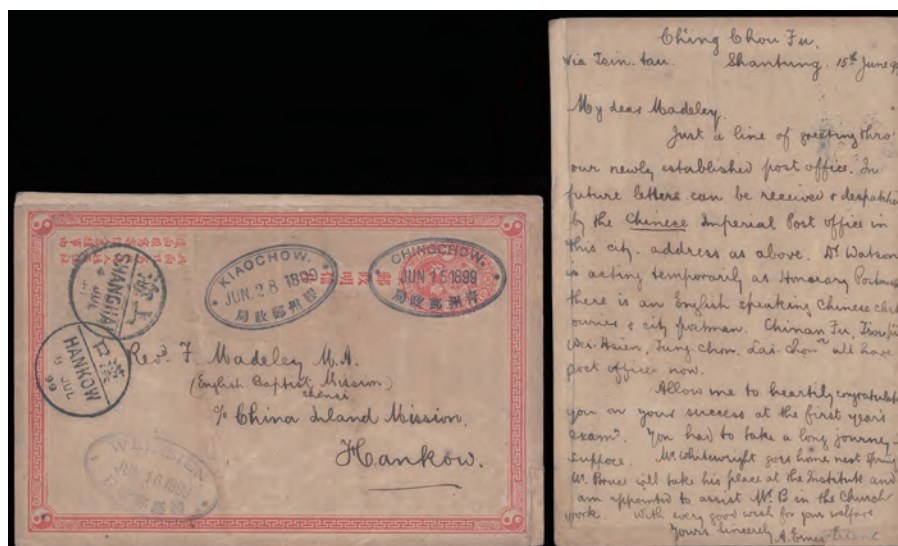 SHANGHAI
JUL
HANKOW
JUL
99
KIAOCHOW.
JUN. 28 1899
局政郵州膠
CHINGCHOW.
JUN 15 1899
局政郵州青
Revd. F. Madeley M.A.
(English Baptist Mission)
Shensi
c/o China Inland Mission.
Hankow.
WEIHSIEN
JUN 16 1899
Ching Chou Fu,
via Tsin-tau. Shantung. 15th June 99
My dear Madeley
Just a line of greeting thro'
our newly established post office. In
future letters can be received & despatched
by the Chinese Imperial Post office in
this city. address as above. Dr Watson
is acting temporarily as Honorary Postmaster
there is an English speaking Chinese clerk
& city postman. Chinan Fu,
Wei-Hsien, Tung-Chou, Lai-Chou all have
post offices now.
Allow me to heartily congratulate
you on your success at the first year's
exam. You had to take a long journey
suppose. Mr. Whitewright goes home next Spring
Mr. Bruce will take his place at the Institute and
am appointed to assist Mr. B in the Church
work. With every good wish for your welfare
Yours Sincerely A. Ernest